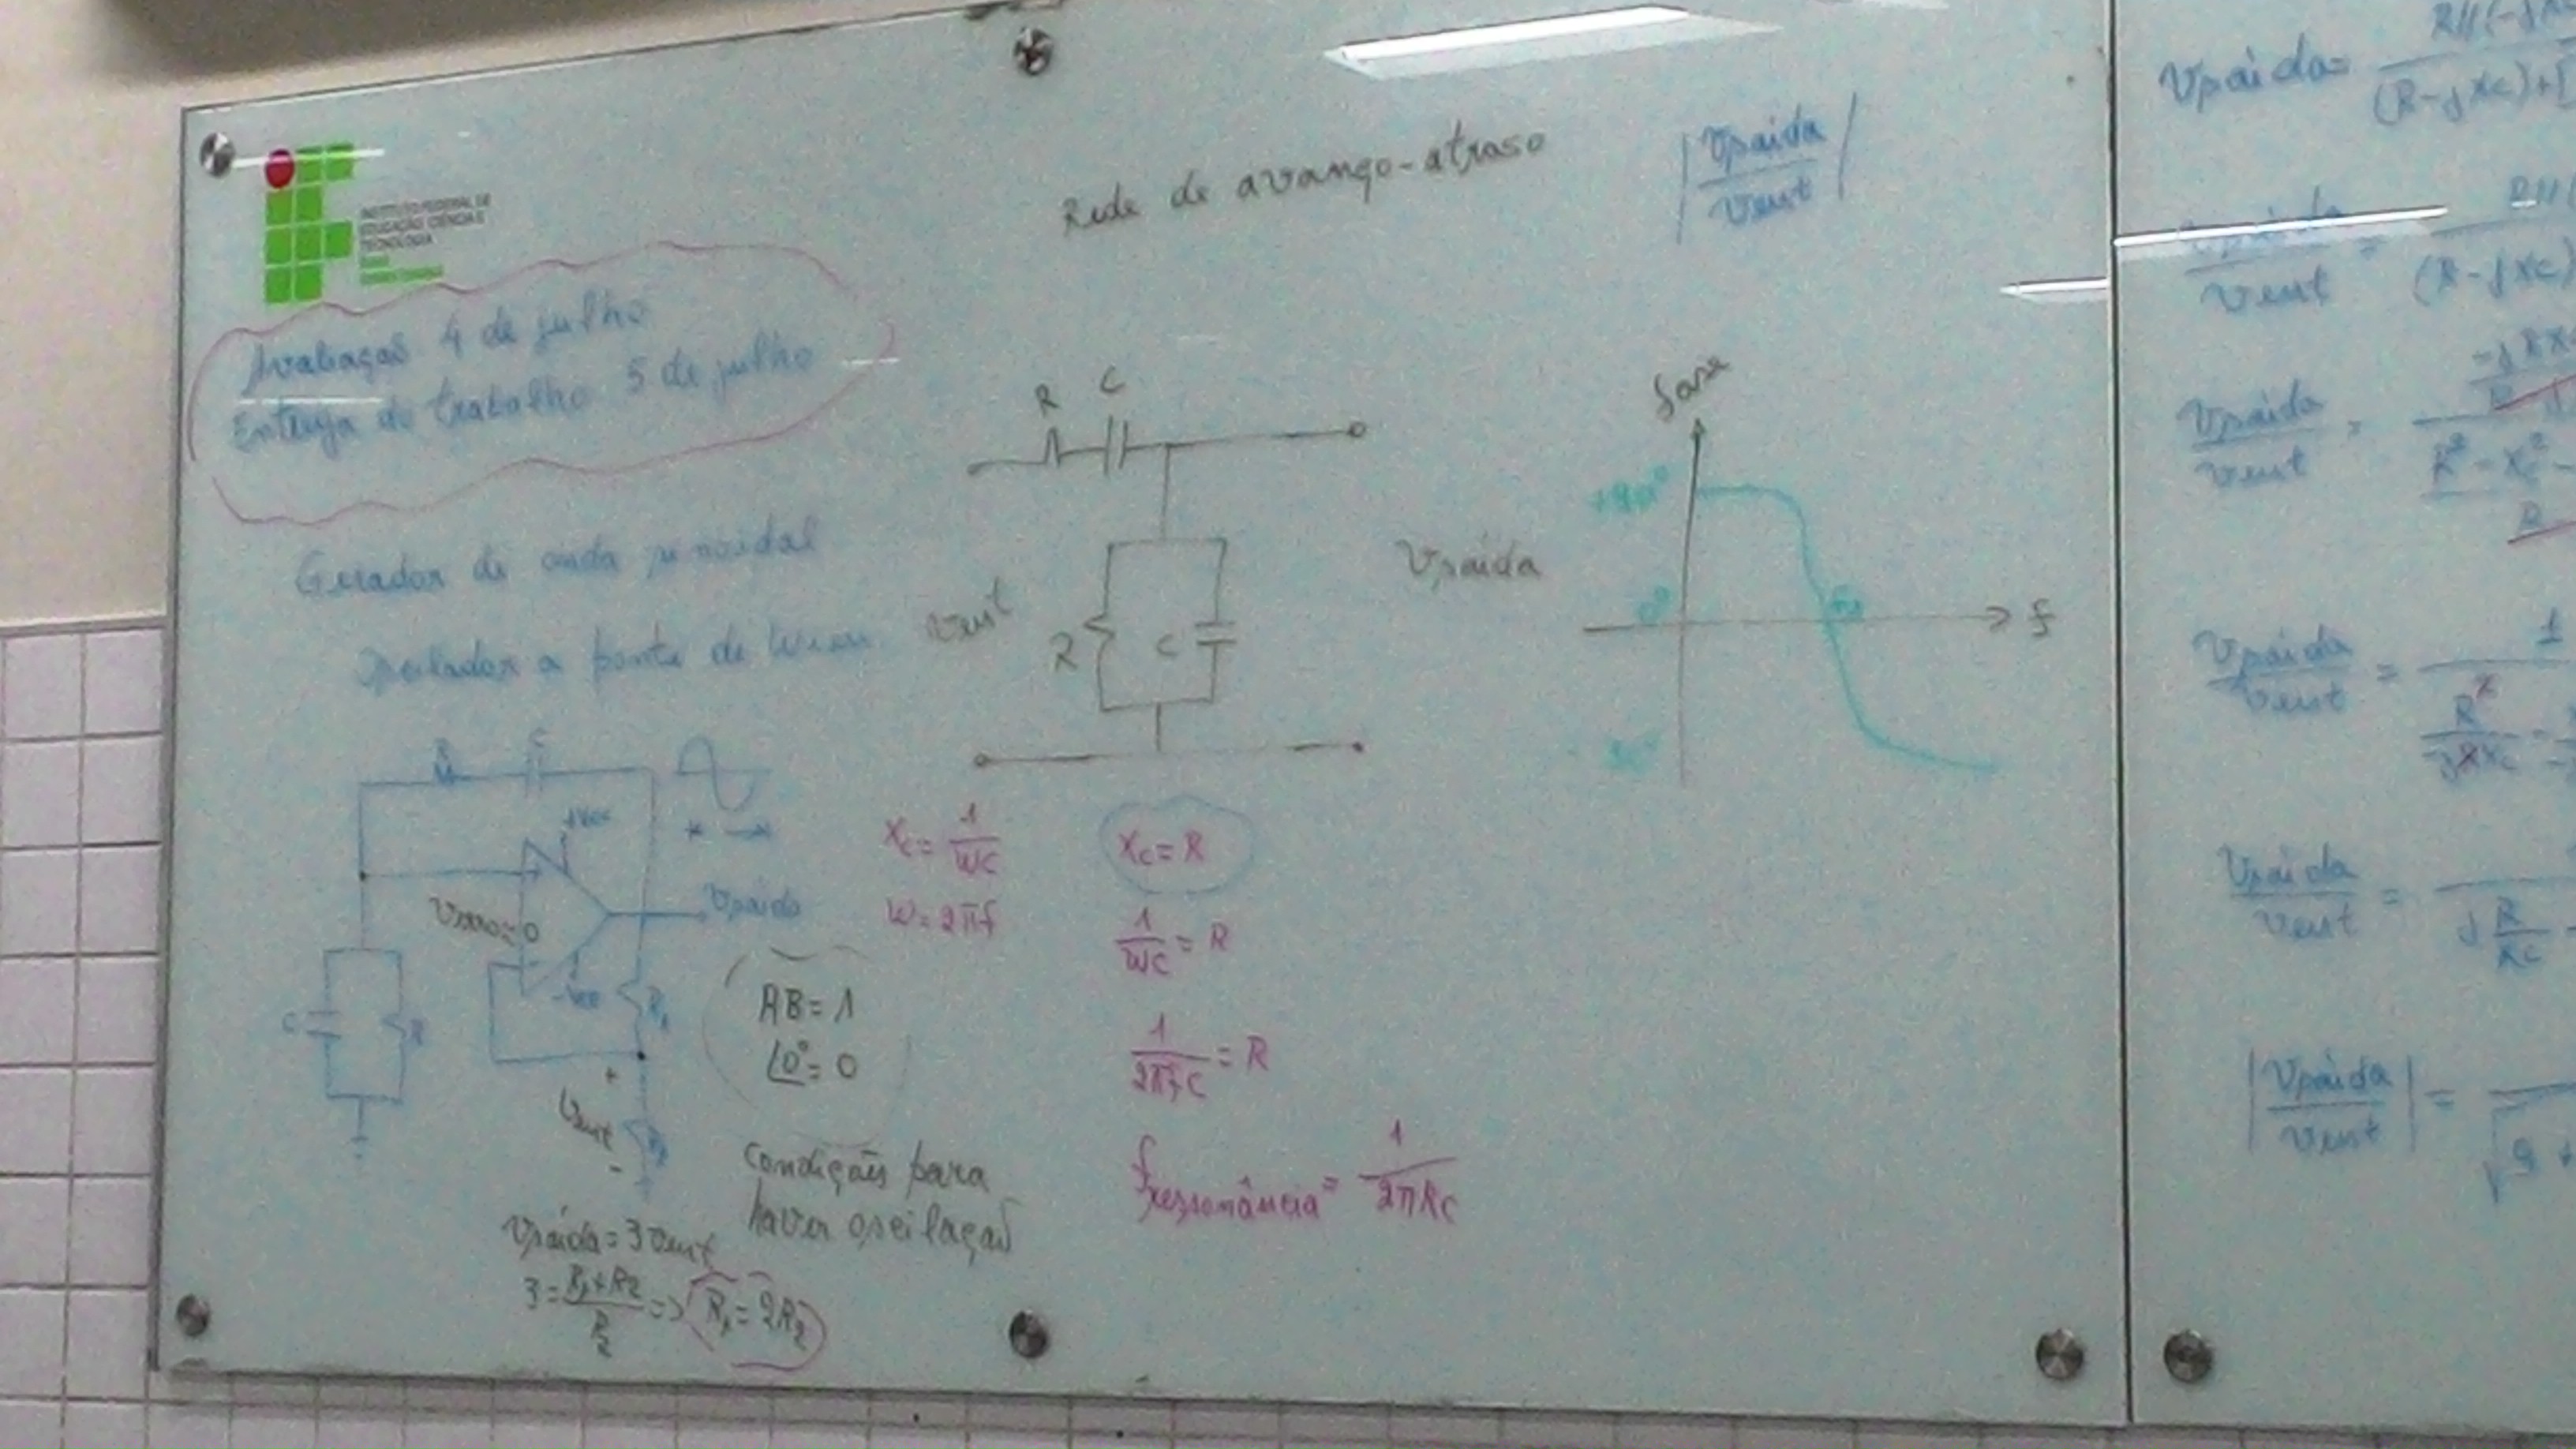 INSTITUTO FEDERAL DE
EDUCAÇÃO, CIÊNCIA E
TECNOLOGIA
Avaliação 4 de julho
Entrega do trabalho 5 de julho
Gerador de onda senoidal
Oscilador a ponte de Wien
R C
+Vcc
Verro=0
Vsaída
-Vcc
C R
R1
+
Vent
-
R2
AB=1
∠0°=0
Condições para
haver oscilação
Vsaída=3Vent
3=(R1+R2)/R2 => R1=2R2
Rede de avanço-atraso
R C
Vent
R C
Vsaída
Xc=1/WC
W=2πf
Xc=R
1/WC=R
1/2πfC=R
fressonância=1/2πRC
|Vsaída/Vent|
fase
+90°
0°
f
Vsaída=
(R-jXc)+[
Vsaída/Vent =
(R-jXc)
Vsaída/Vent =
Vsaída/Vent =
Vsaída/Vent =
|Vsaída/Vent| =